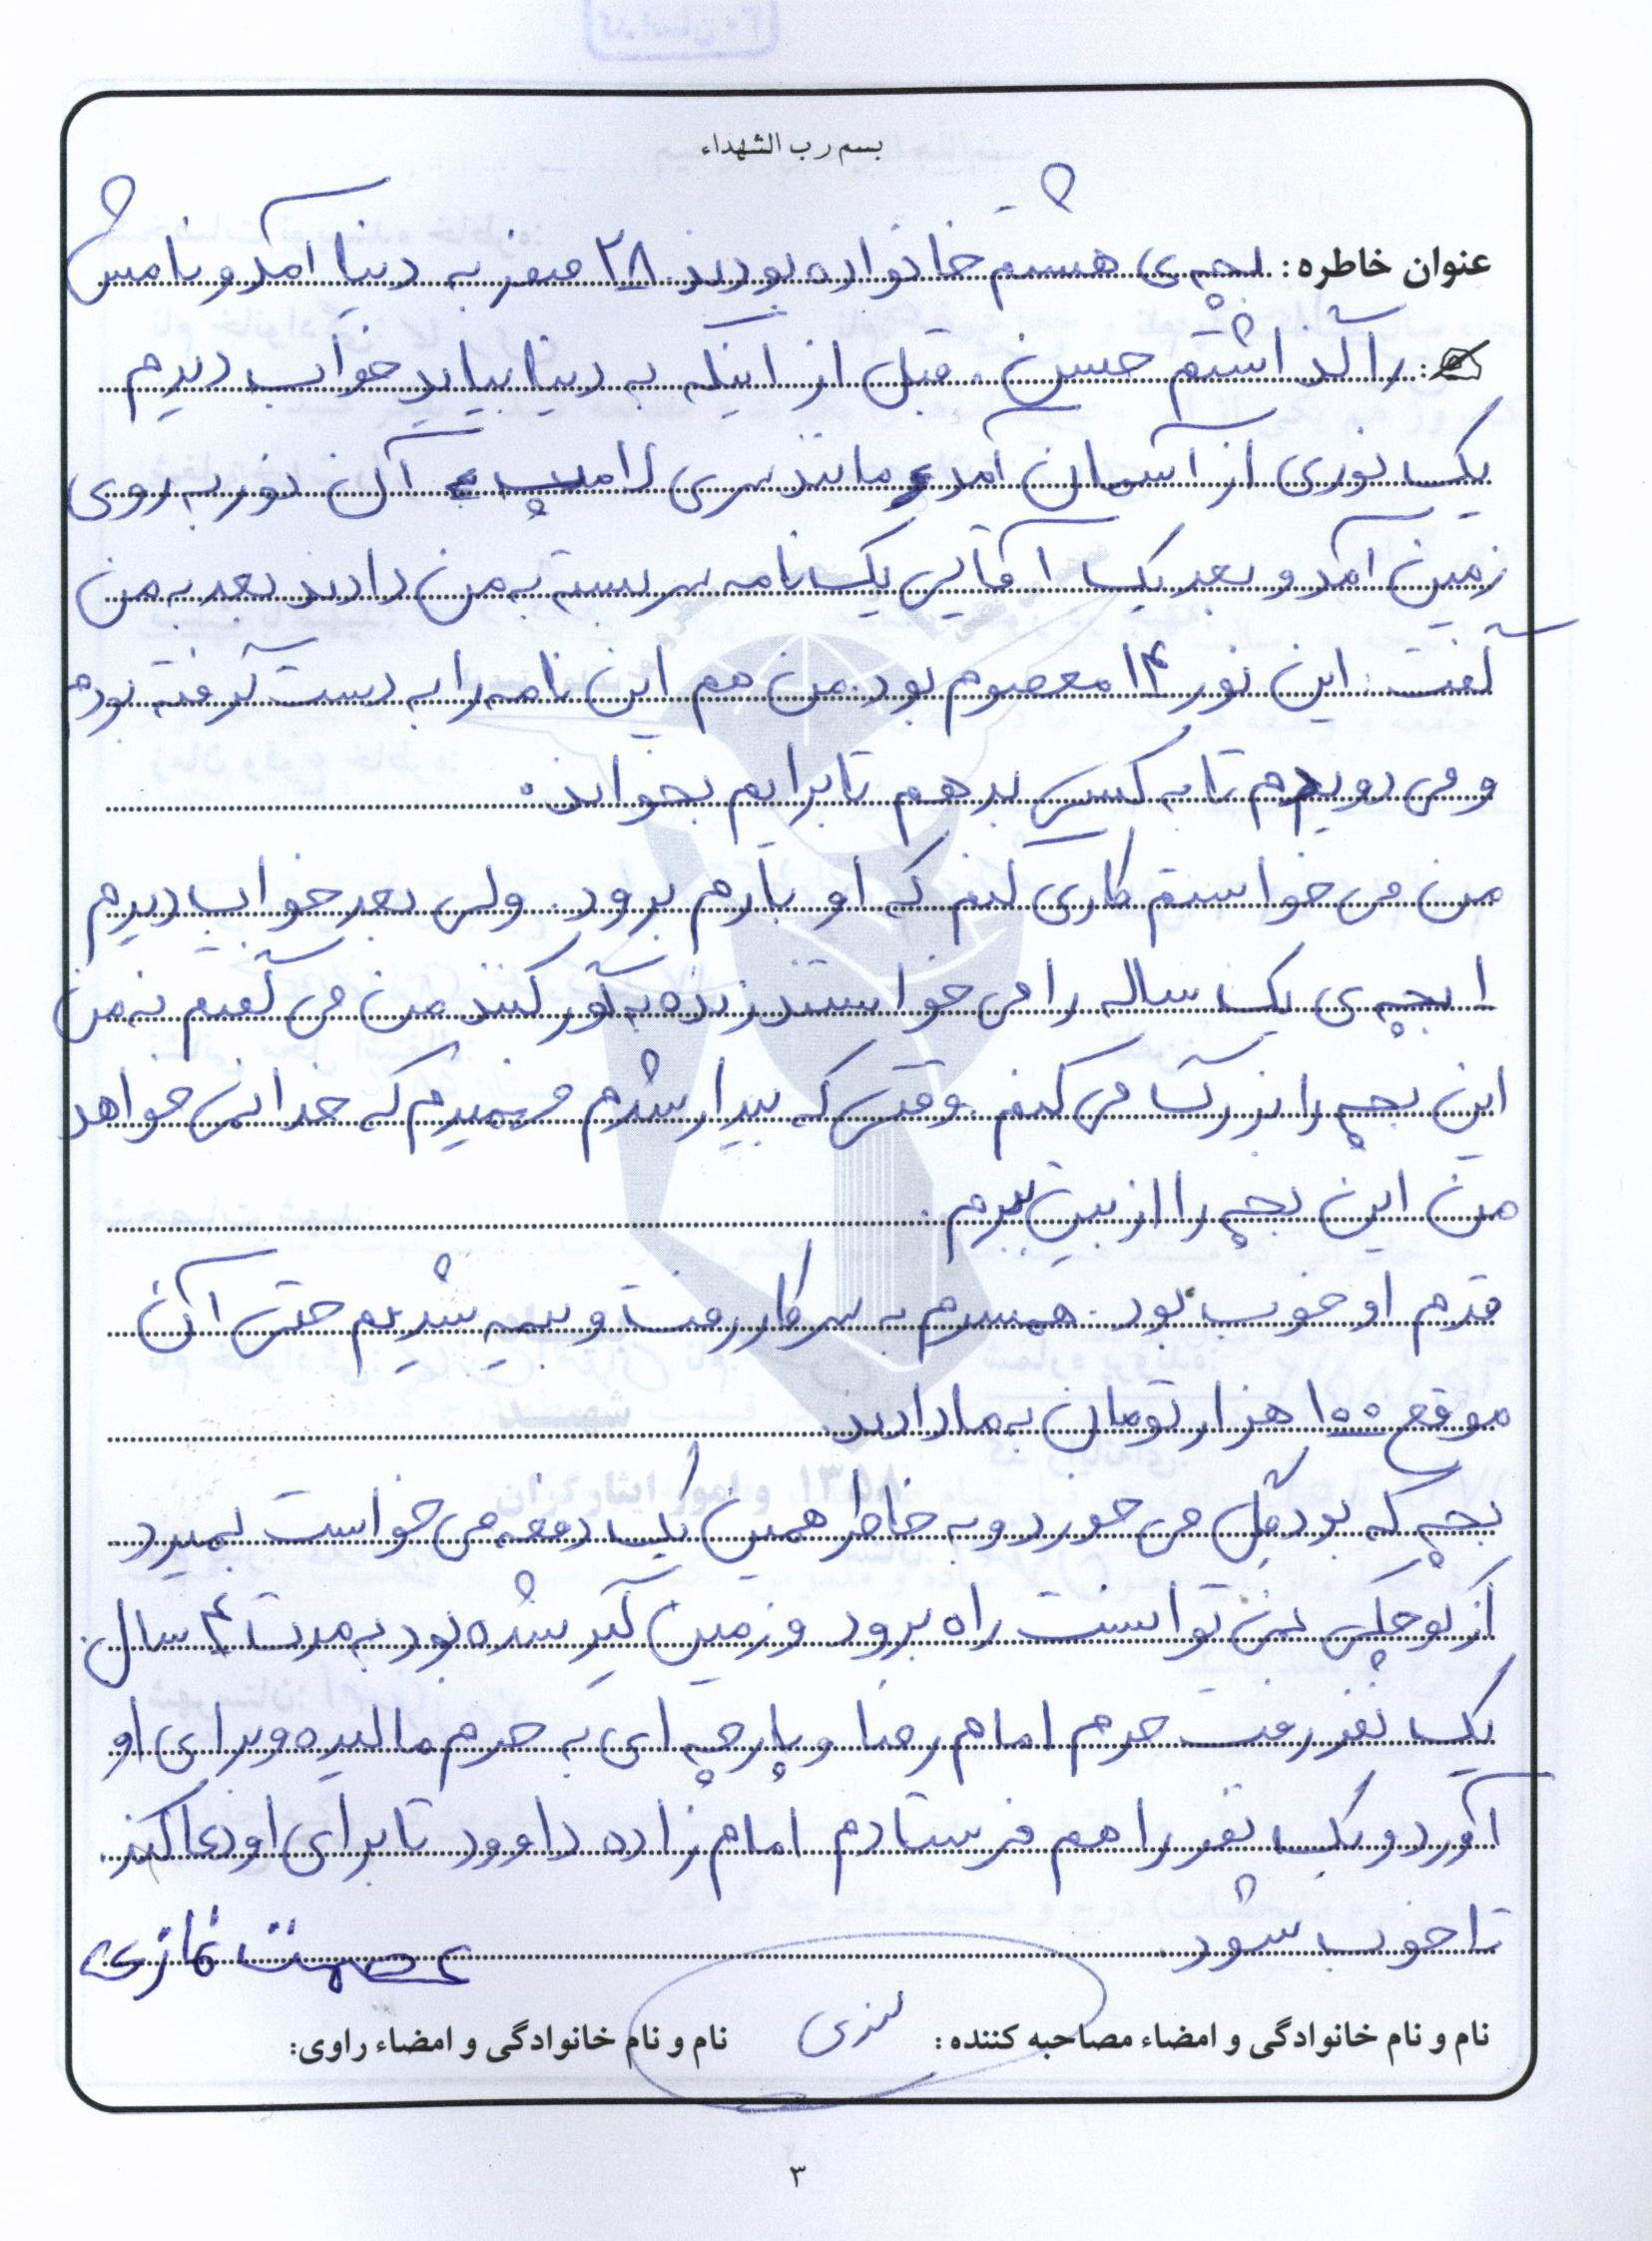 بسم رب الشهداء
عنوان خاطره: بچه‌ی هشتم خانواده بودند. ۲۸ صفر به دنیا آمد و نامش
را گذاشتم حسن. قبل از اینکه به دنیا بیاید خواب دیدم
یک نوری از آسمان آمد و مانند سری لامپ آن نور به روی
زمین آمد و بعد یک آقایی یک نامه سربسته به من دادند بعد به من
گفت: این نور ۱۴ معصوم بود. من هم این نامه را به دست گرفته بودم
و می دویدم تا به کسی بدهم تا برایم بخواند.
من می خواستم کاری کنم که او یادم برود. ولی بعد خواب دیدم
۱ بچه‌ی یک ساله را می خواستند زنده به گور کنند من می گفتم نه من
این بچه را بزرگ می کنم. وقتی که بیدار شدم فهمیدم که خدا نمی خواهد
من این بچه را از بین ببرم.
قدم او خوب بود. همسرم به سر کار رفت و بیمه شدیم حتی آن
موقع ۱۰۰ هزار تومان به ما دادند.
بچه که بود گِل می خورد و به خاطر همین یک دفعه می خواست بمیرد
از کوچکی نمی توانست راه برود و زمین گیر شده بود به مدت ۴ سال.
یک نفر رفت حرم امام رضا و پارچه ای به حرم مالیده و برای او
آورد و یک نفر را هم فرستادم امام زاده داوود تا برای او دعا کند.
تا خوب شود.
عصمت نمازی
نام و نام خانوادگی و امضاء مصاحبه کننده: نام و نام خانوادگی و امضاء راوی:
۳